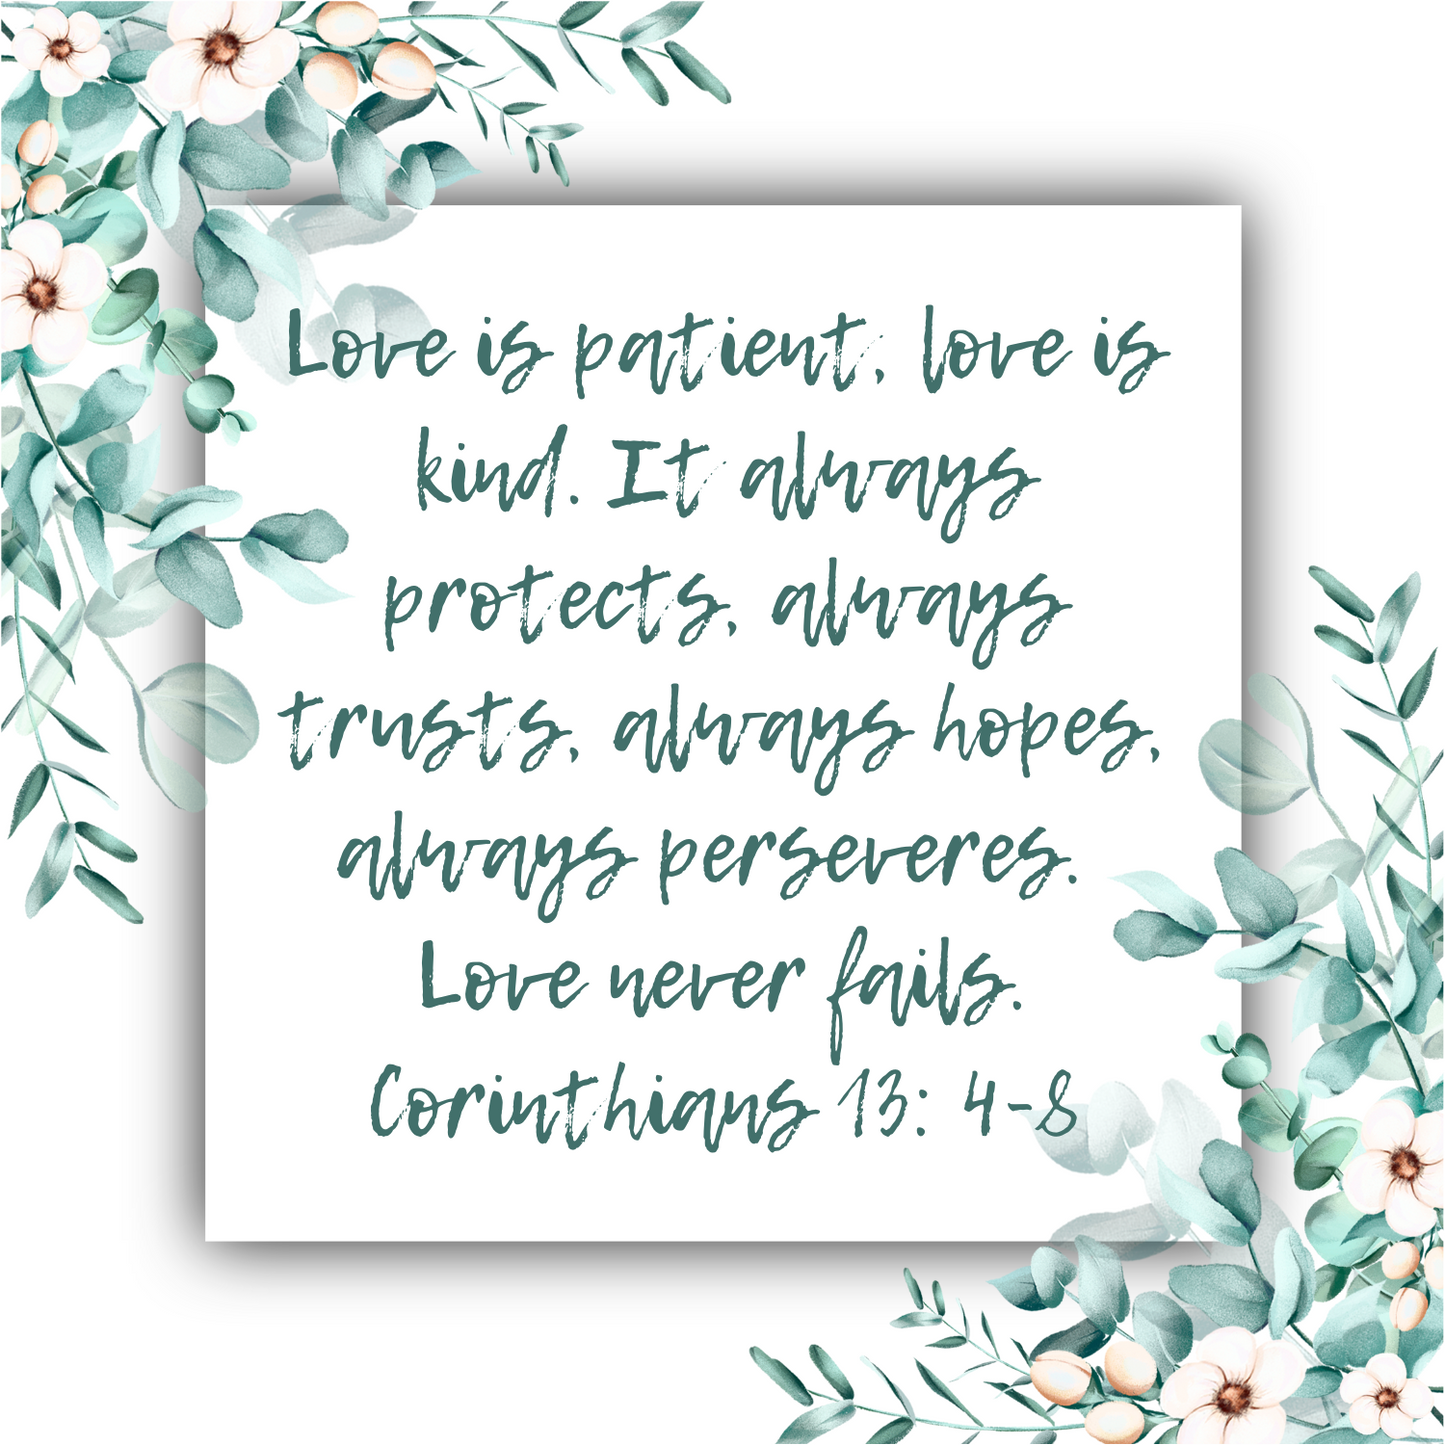 Love is patient, love is
kind. It always
protects, always
trusts, always hopes,
always perseveres.
Love never fails.
Corinthians 13: 4-8